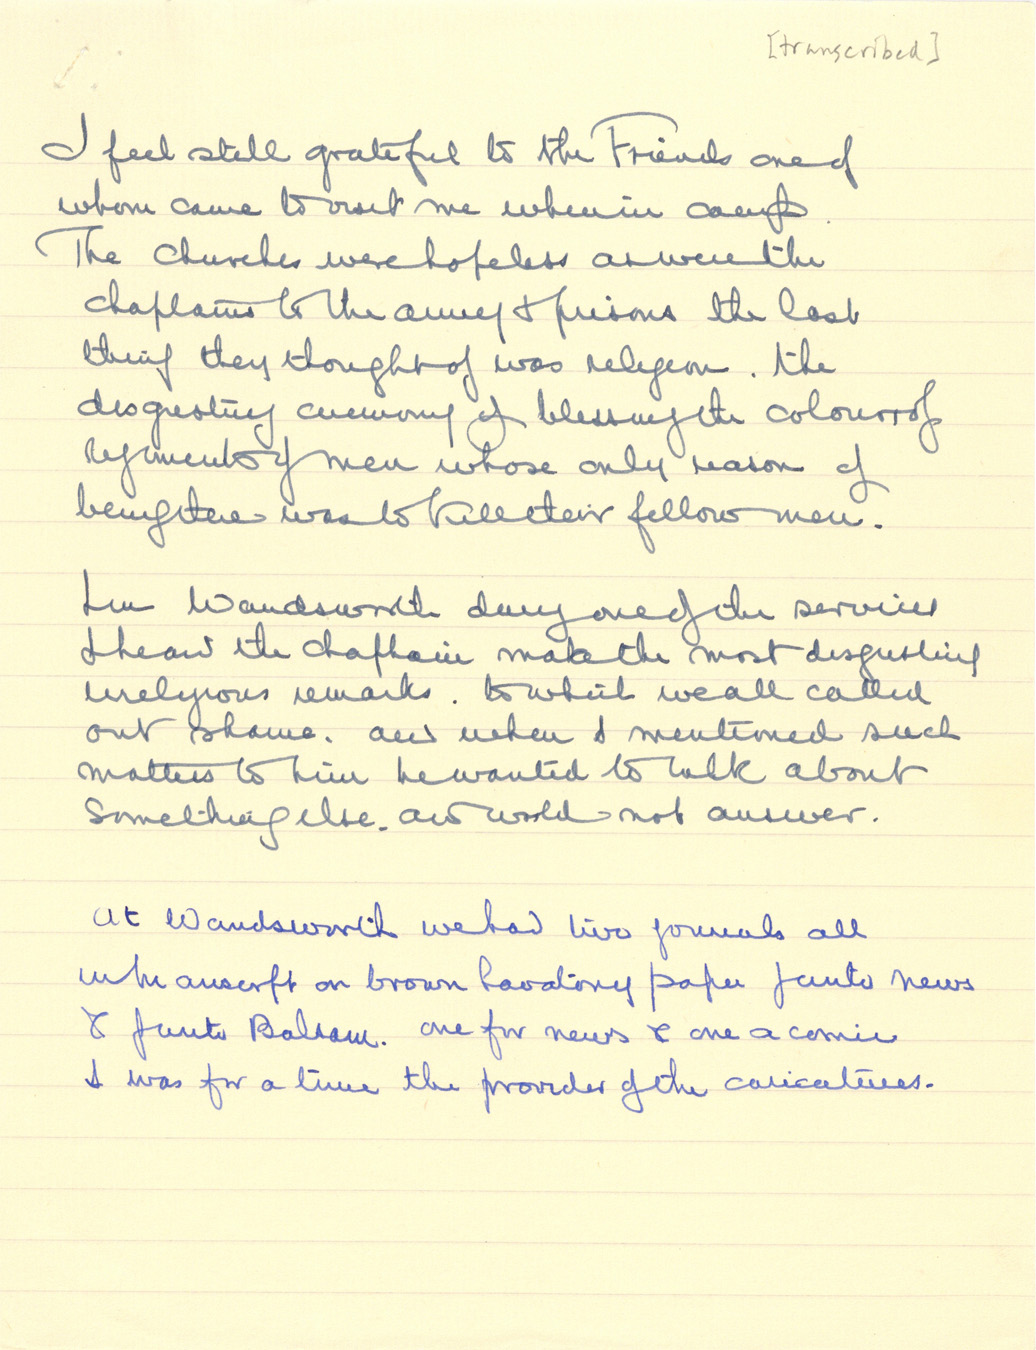 [transcribed]
I feel still grateful to the Friends one of
whom came to visit me when in camp.
The churches were hopeless as were the
chaplains to the army & prisons the last
thing they thought of was religion. The
disgusting ceremony of blessing the colours of
regiments of men whose only reason of
being there was to kill their fellow men.
In Wandsworth during one of the services
I heard the chaplain make the most disgusting
irreligious remarks. to which we all called
out shame. and when I mentioned such
matters to him he wanted to talk about
something else. and would not answer.
At Wandsworth we had two journals all
in on brown lavatory paper Junto News
& Junto Balsam. one for news & one a comic
I was for a time the provider of the caricatures.